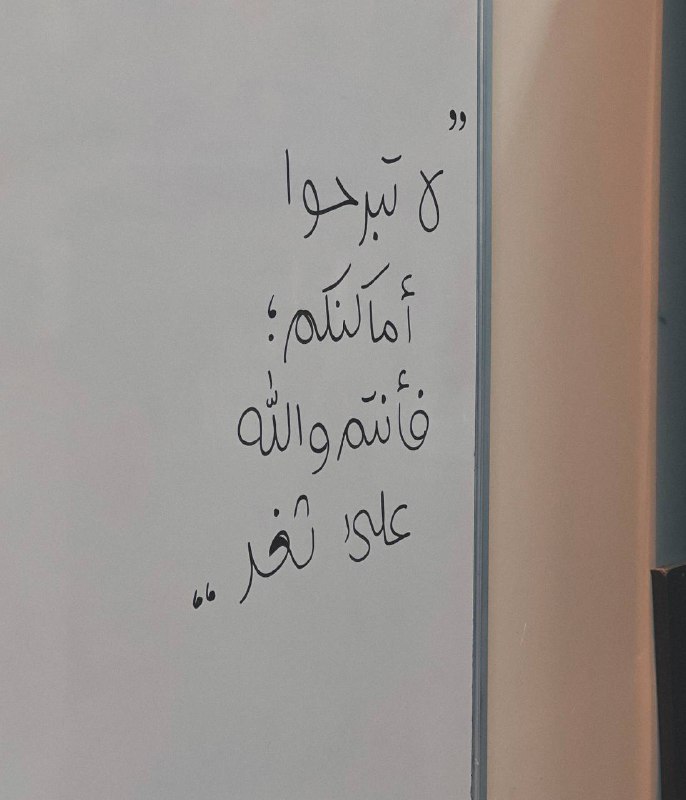 ”لا تبرحوا
أماكنكم؛
فأنتم والله
على ثغر“